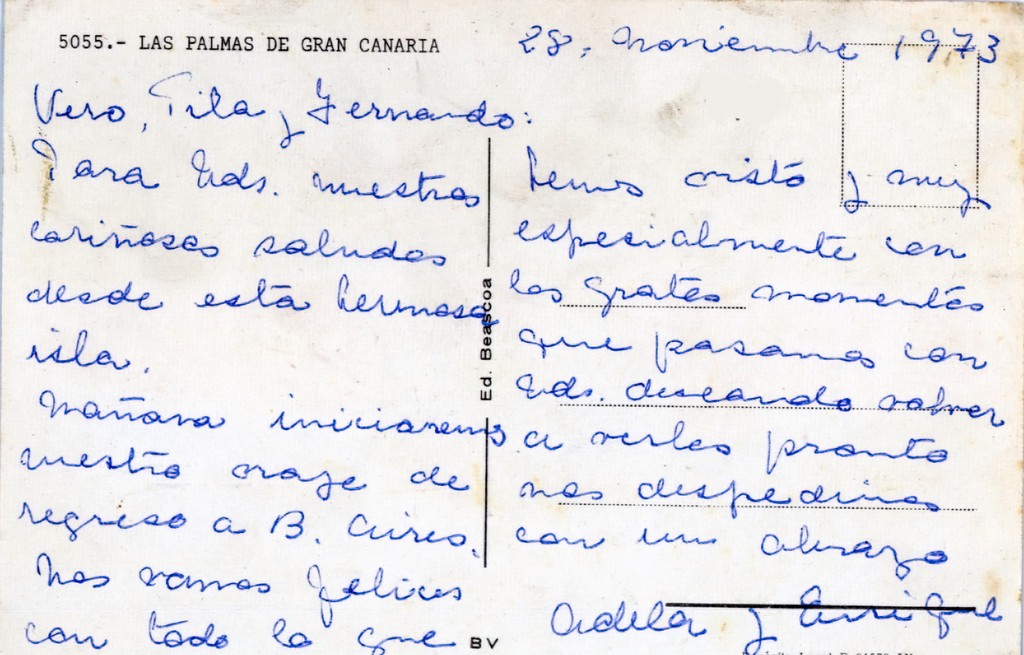 5055.- LAS PALMAS DE GRAN CANARIA
28, Noviembre 1973
Vero, Tila y Fernando:
Para Uds. nuestros
cariñosos saludos
desde esta hermosa
isla.
Mañana iniciaremos
nuestro viaje de
regreso a B. Aires.
Nos vamos felices
con todo lo que
hemos visto y muy
espesialmente con
los gratos momentos
que pasamos con
Uds. deseando volver
a verlos pronto
nos despedimos
con un abrazo
Adela y Enrique
Ed. Beascoa
BV